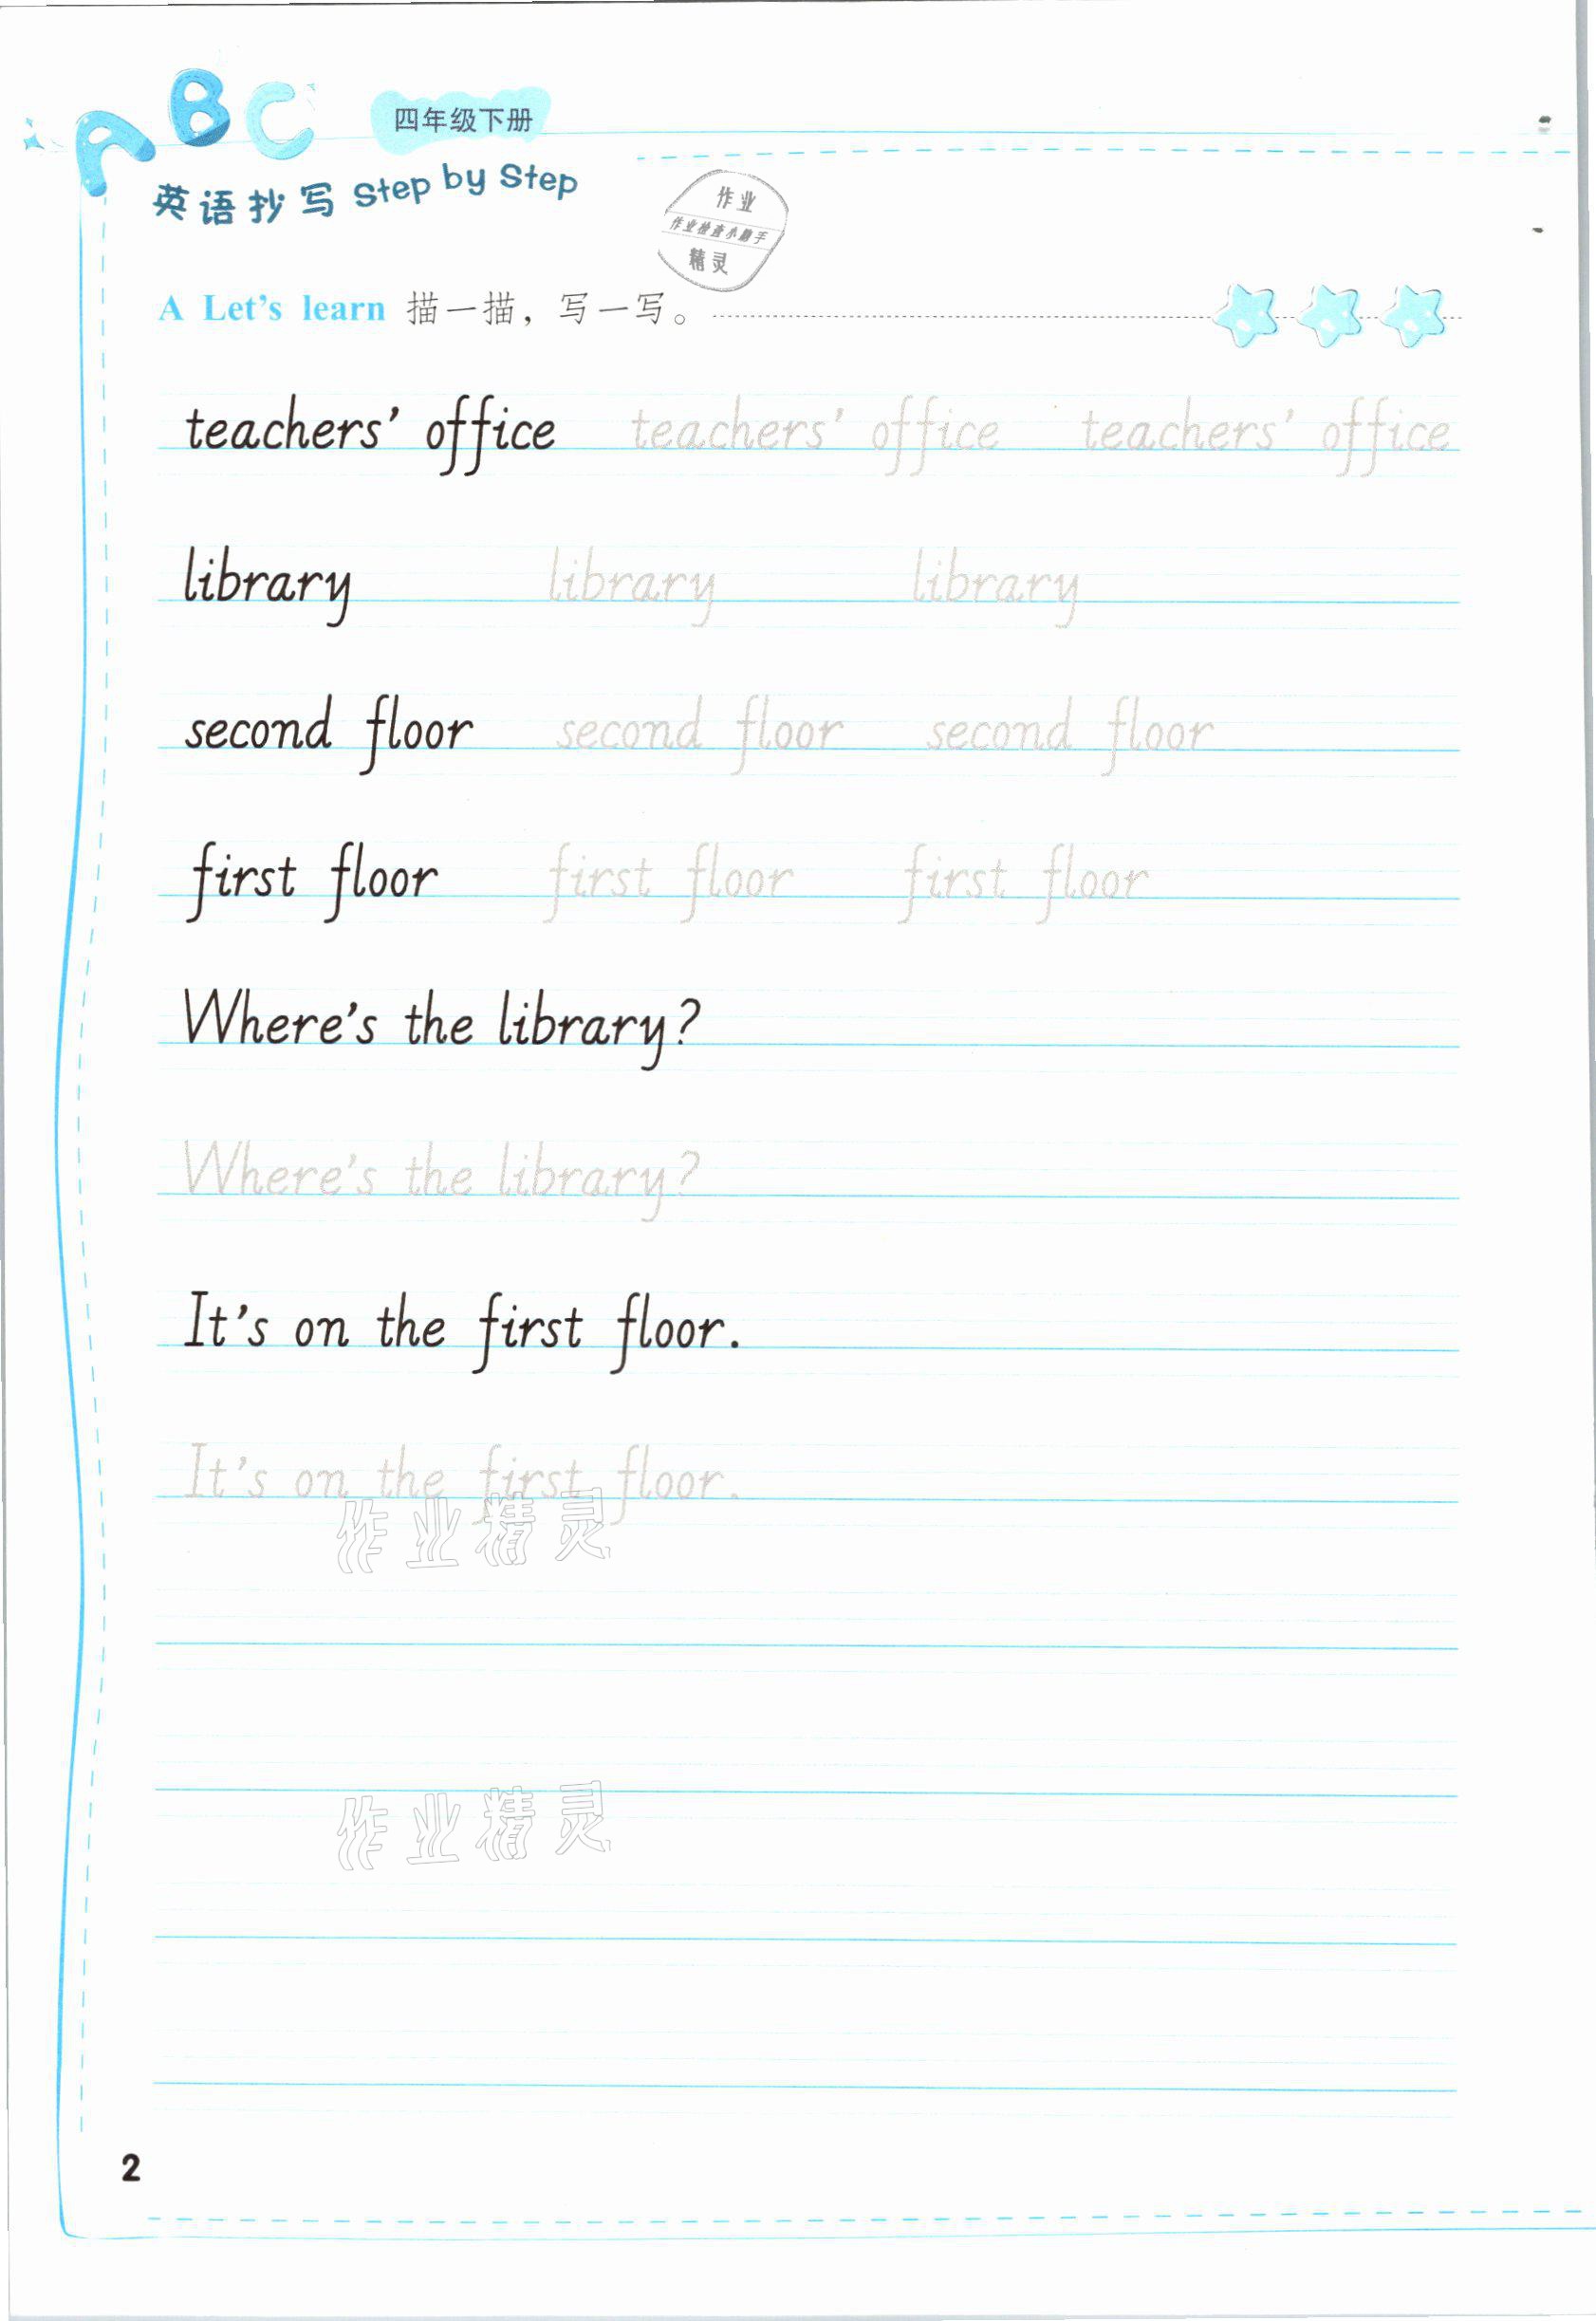 ABC
四年级下册
英语抄写 Step by Step
作业
作业检查小助手
精灵
A Let's learn 描一描，写一写。
teachers' office teachers' office teachers' office
library library library
second floor second floor second floor
first floor first floor first floor
Where's the library?
Where's the library?
It's on the first floor.
It's on the first floor.
作业精灵
作业精灵
2